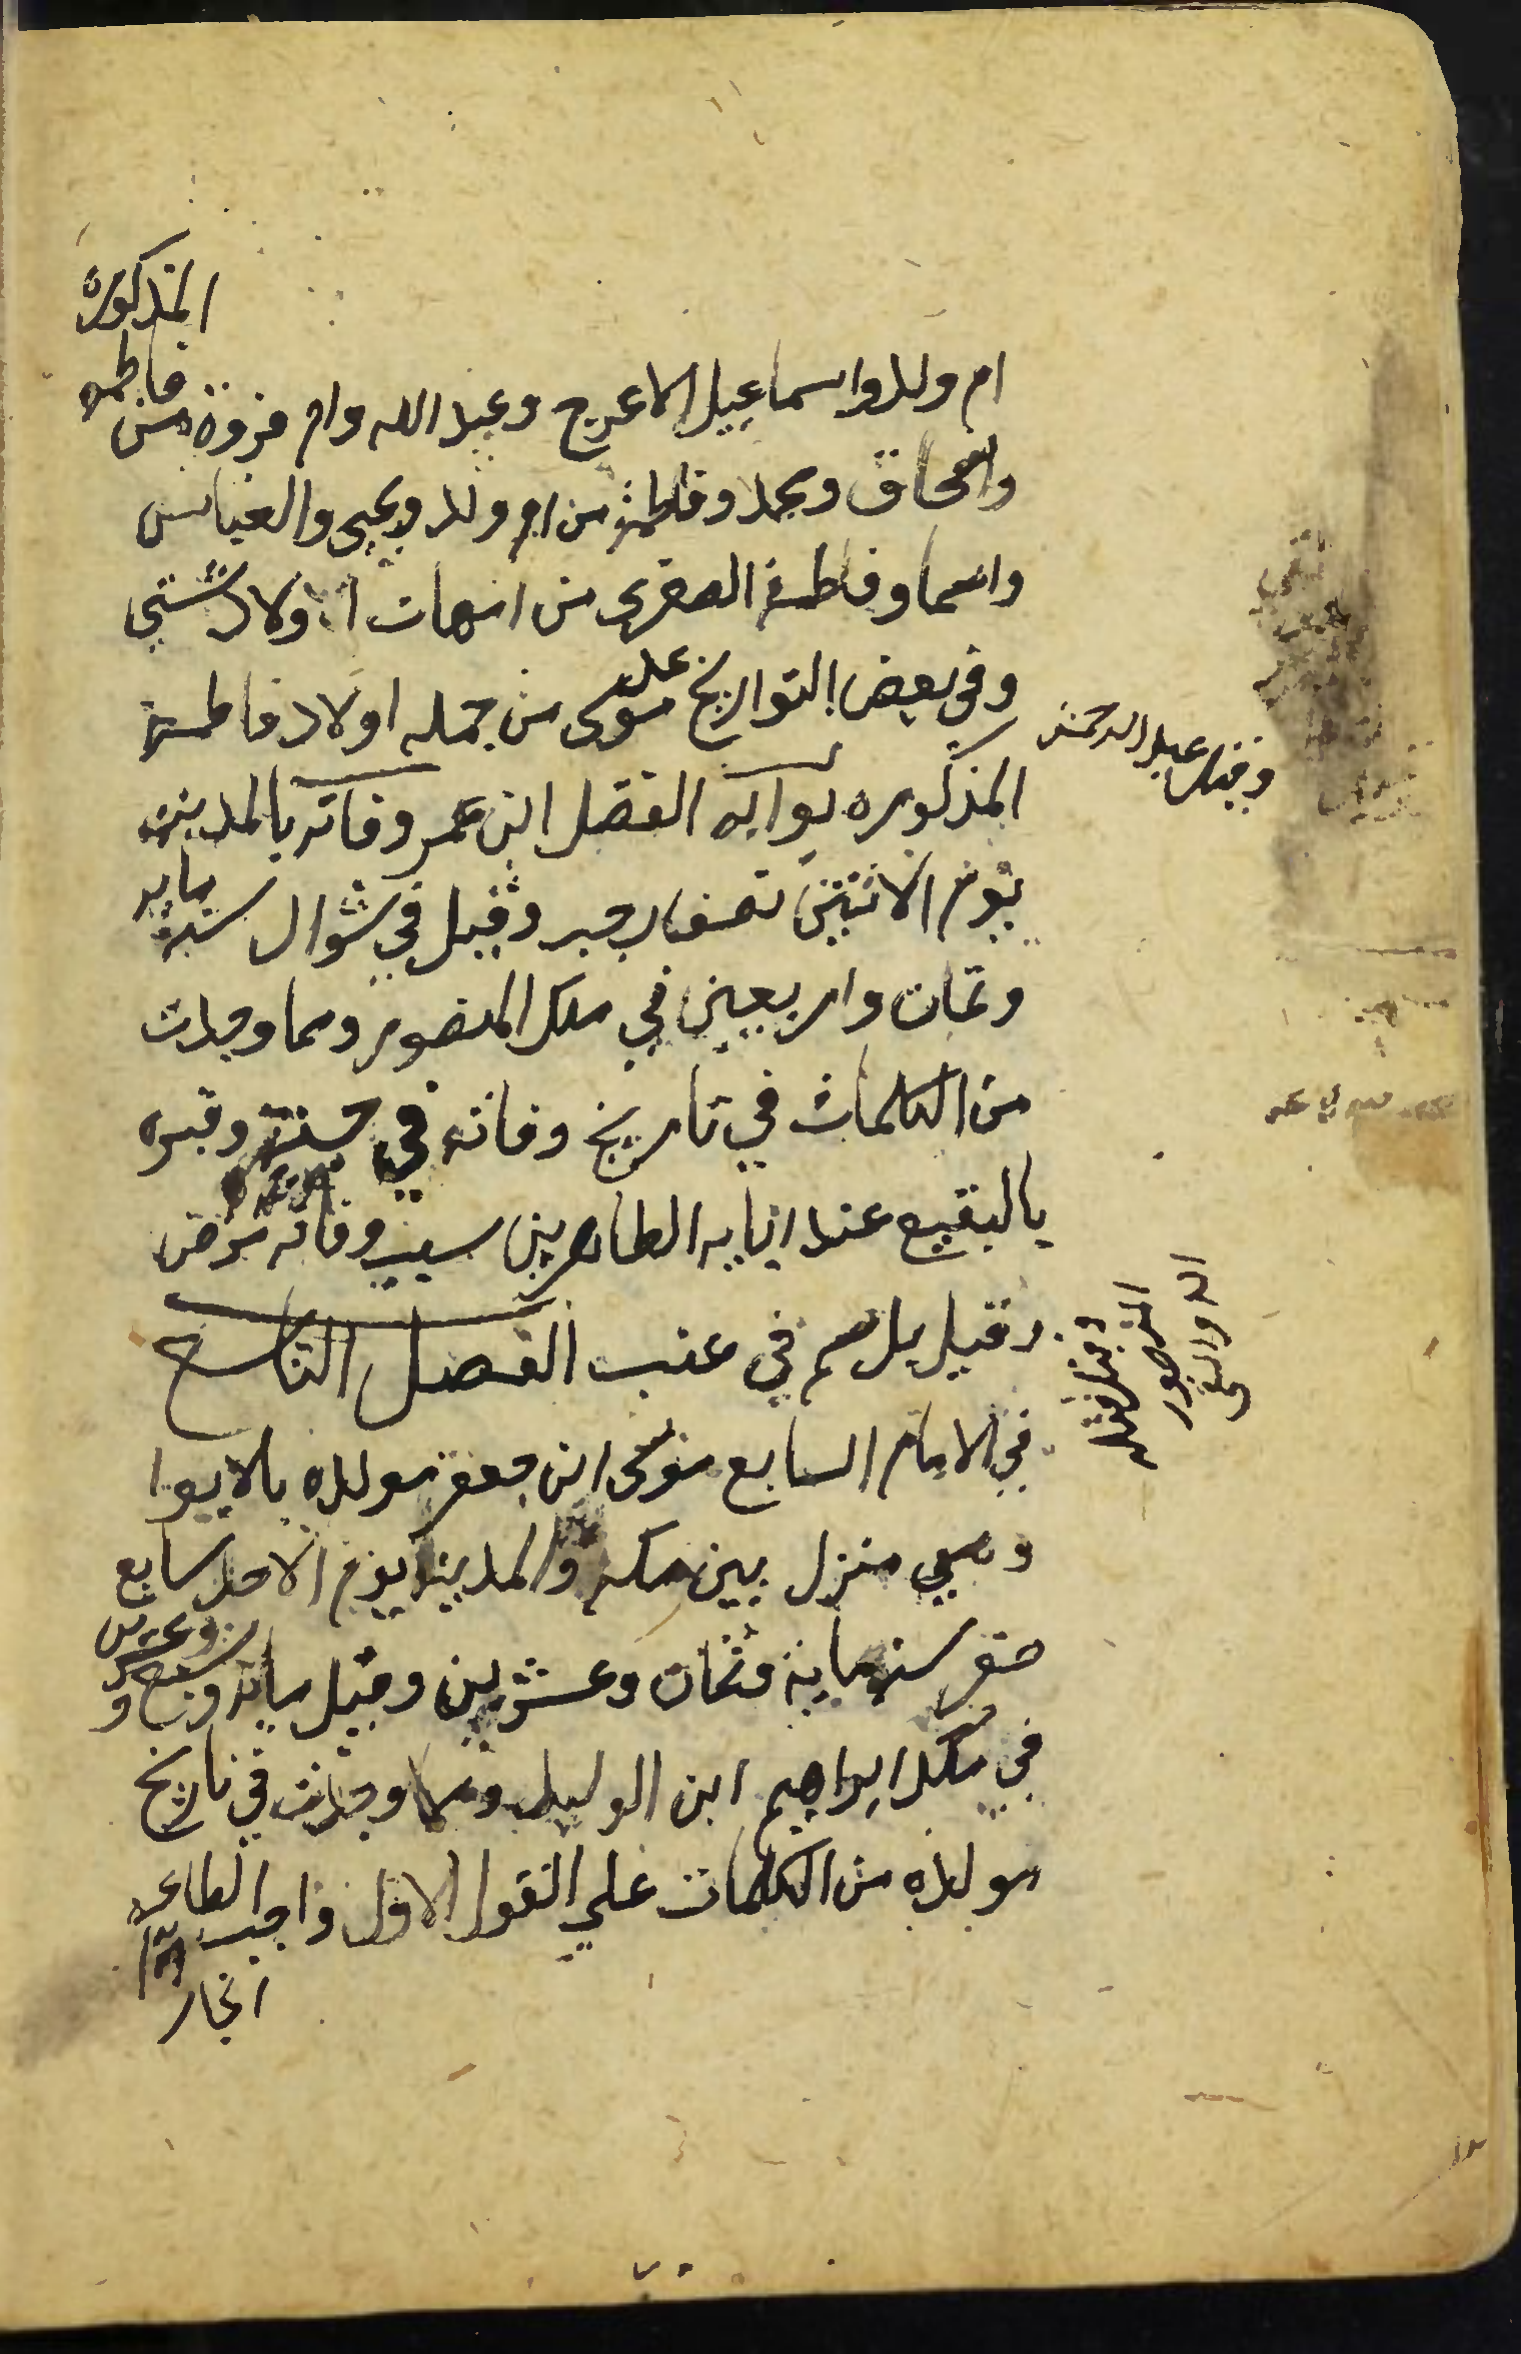 ام ولد واسماعيل الاعرج وعبد الله وام فروة من فاطمه المذكورة
واسحاق ومحمد وفاطمة من ام ولد ويحيى والعباس
واسما وفاطمة الصغرى من امهات اولاد شتى
وفي بعض التواريخ علي موسى من جمله اولاد فاطمة
وقيل عبد الرحمن
المذكوره بوابه الفضل ابن عمر وفاته بالمدينه
يوم الاثنين نصف رجب وقيل في شوال سنة مايه
وثمان واربعين في ملك المنصور ومما وجدت
من الكلمات في تاريخ وفاته في جنته وقبره
بالبقيع عند ابايه الطاهرين سبب وفاته مرض
وقيل بل سم في عنب الفصل التاسع
المنصور
الدوانيقي
في الامام السابع موسى ابن جعفر مولده بالابوا
وهي منزل بين مكه والمدينة يوم الاحد سابع
صفر سنه ماية وثمان وعشرين وقيل مايه وتسع وعشرين
في ملك ابراهيم ابن الوليد ومما وجدت في تاريخ
مولده من الكلمات علي القول الاول واجب الطاعه